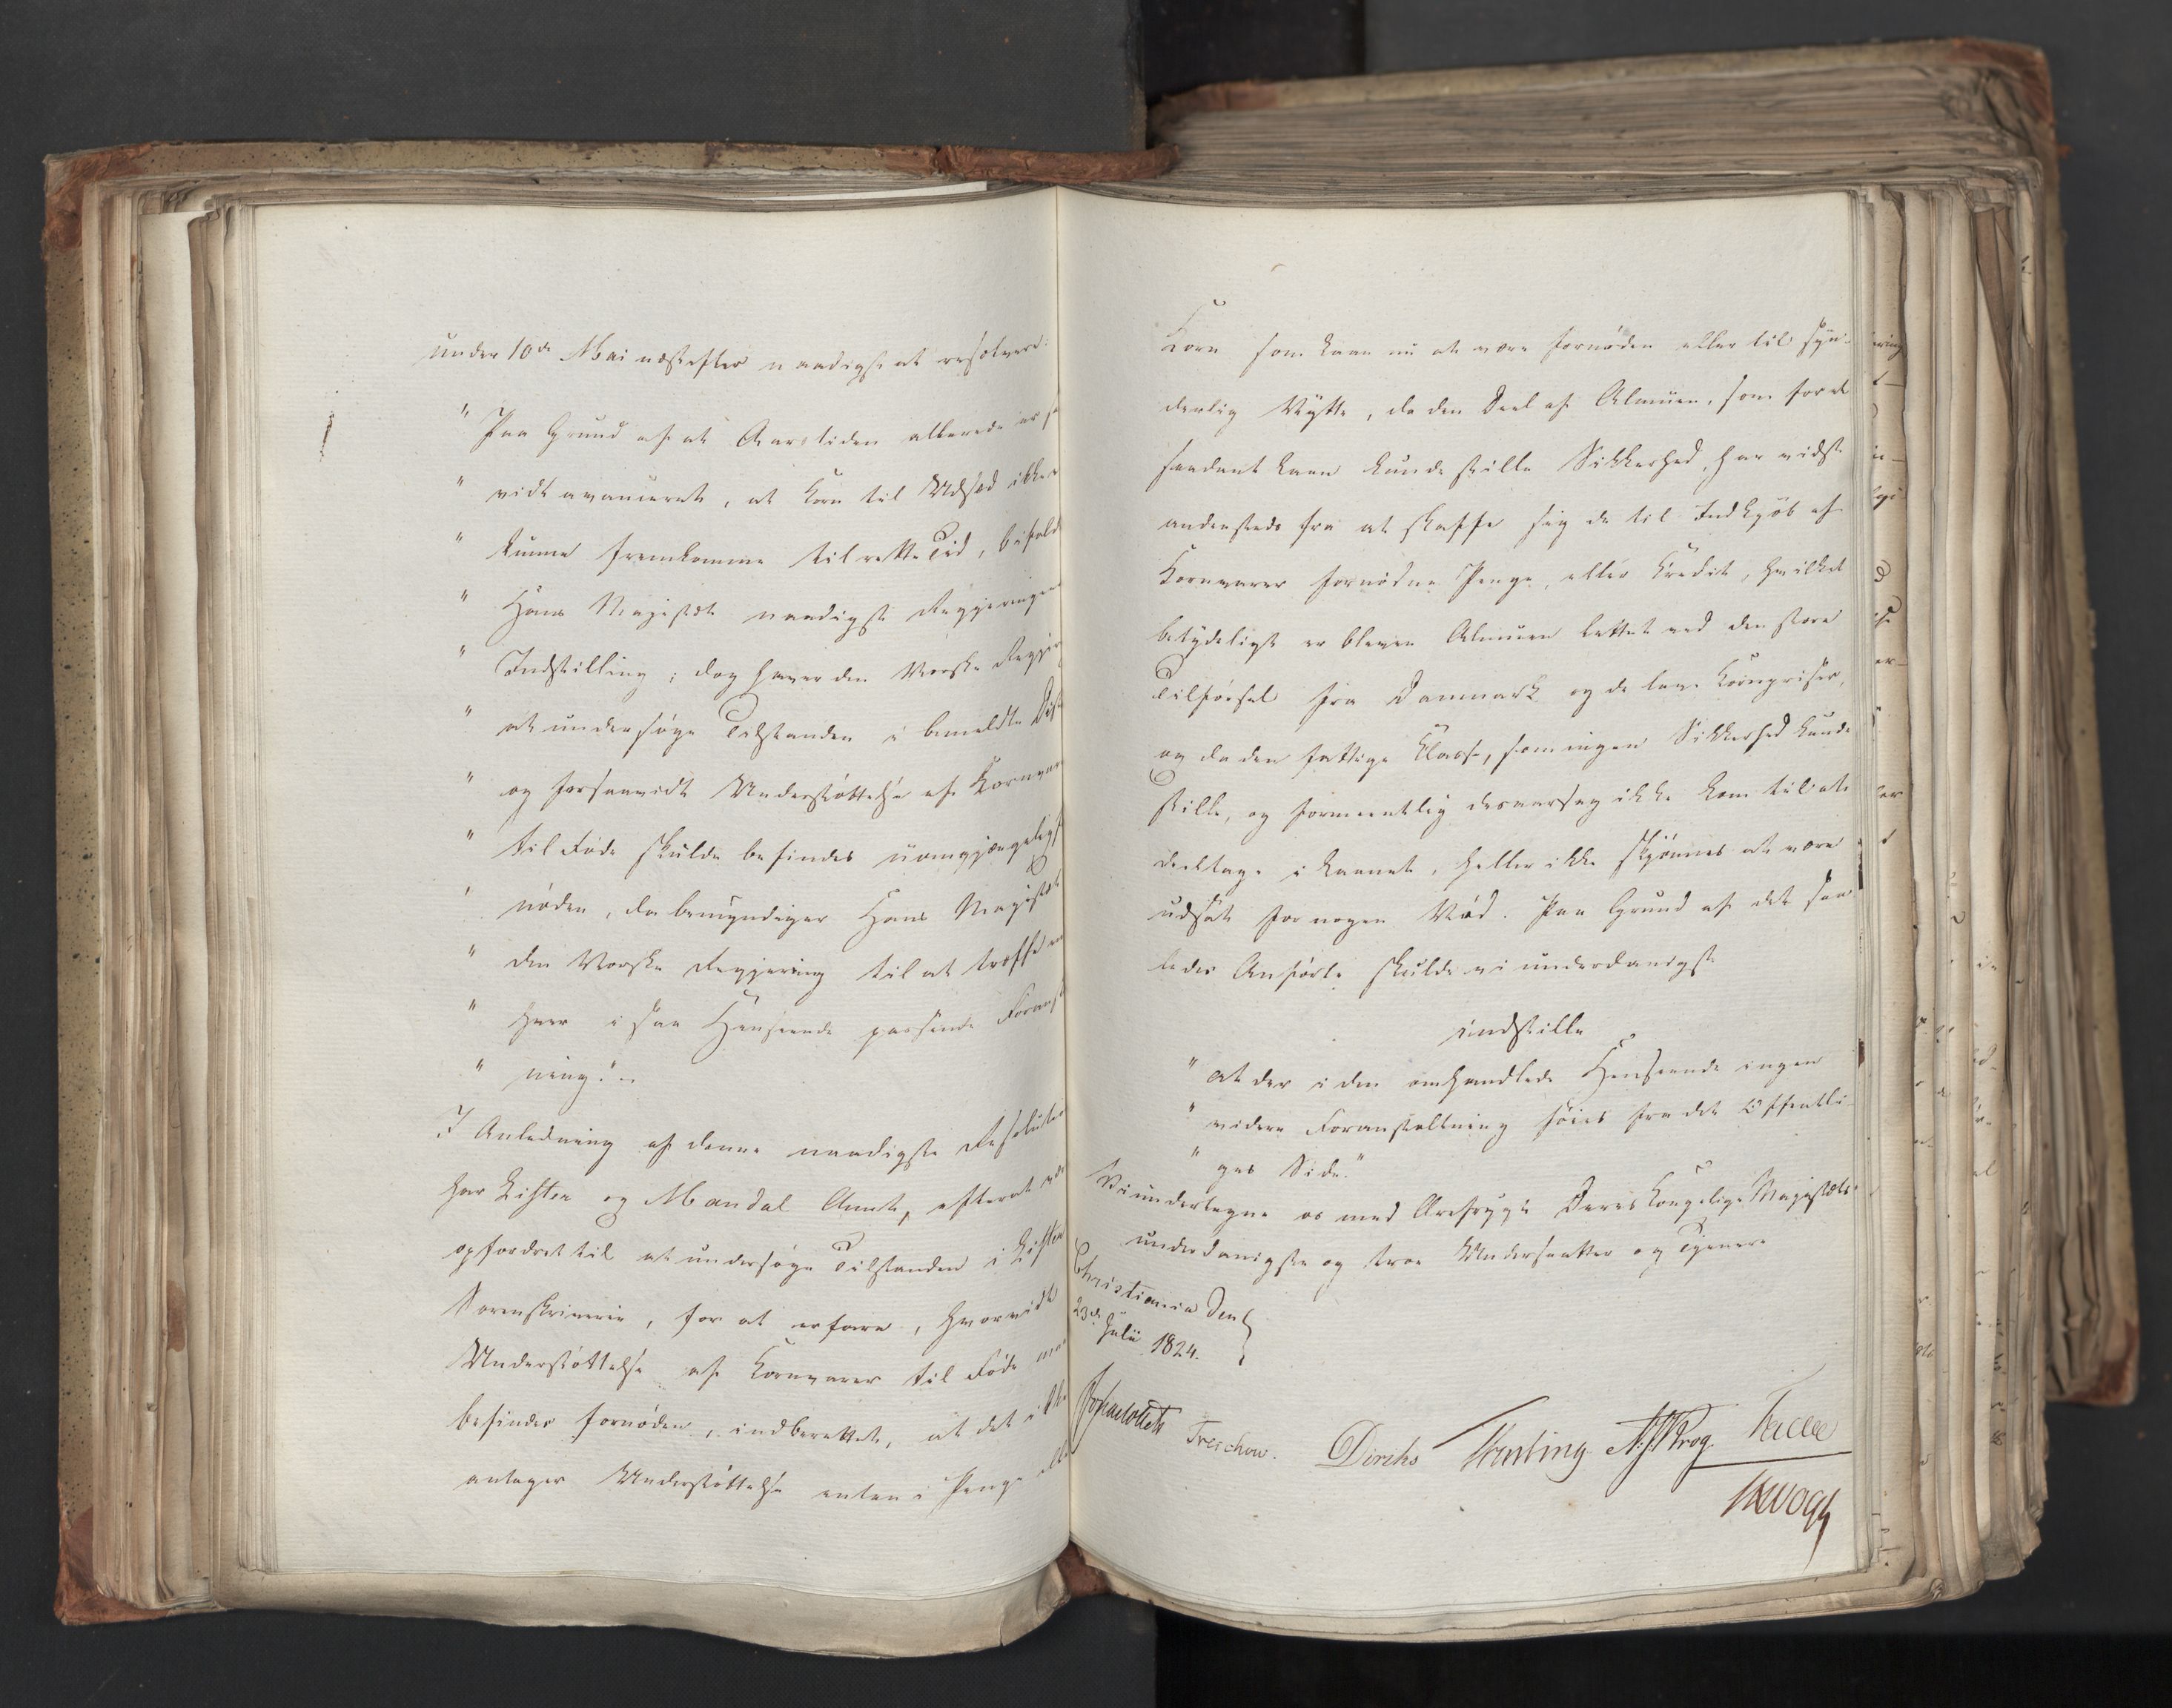 under 10de Mai næstefter naadigst at resolvere:
" Paa Grund af at Aarstiden allerede er s
" vidt avanceret, at Korn til Udsæd ikke
" kunne fremkomme til rette Tid, bifald
" Hans Majestæt naadigst Regjeringen
" Indstilling; dog haver den Norske Regjer
" at undersøge Tilstanden i bemeldte Dis
" og forsaavidt Understøttelse af Kornvar
" til Føde skulde befindes uomgjængeligt
" nøden, da bemyndiger Hans Majestæt
" den Norske Regjering til at træffe en
" hver i saa Henseende passende Foranst
" ning."
I Anledning af denne naadigste Resolution
har Lister og Mandal Amt, efterat
opfordret til at undersøge Tilstanden i Lister
Sorenskriverie, for at erfare, hvorvidt
Understøttelse af Kornvarer til Føde
befindes fornøden, indberettet, at det ikke
antager Understøttelse enten i Penge eller
Korn som Laan nu at være fornøden eller til syn-
derlig Nytte, da den Deel af Almuen, som for et
saadant Laan kunde stille Sikkerhed, har vidst
andensteds fra at skaffe sig de til Indkjøb af
Kornvarer fornødne Penge, eller Credit, hvilket
betydeligt er bleven Almuen lettet ved den store
Tilførsel fra Danmark og de lave Kornpriser,
og da den fattige Classe, som ingen Sikkerhed kunde
stille, og formeentlig desaarsag ikke kom til at
deeltage i Laanet, heller ikke skjønnes at være
udsat for nogen Nød. Paa Grund af det saa-
ledes Anførte skulde vi underdanigst
indstille
" at der i den omhandlede Henseende ingen
" videre Foranstaltning føies fra det Offentli-
" ges Side."
Vi undertegne os med Ærefrygt Deres Kongelige Majestæts
underdanigste og troe Undersaatter og Tjenere
Christiania den
23de Julii 1824.
Treschow. Diriks Krog